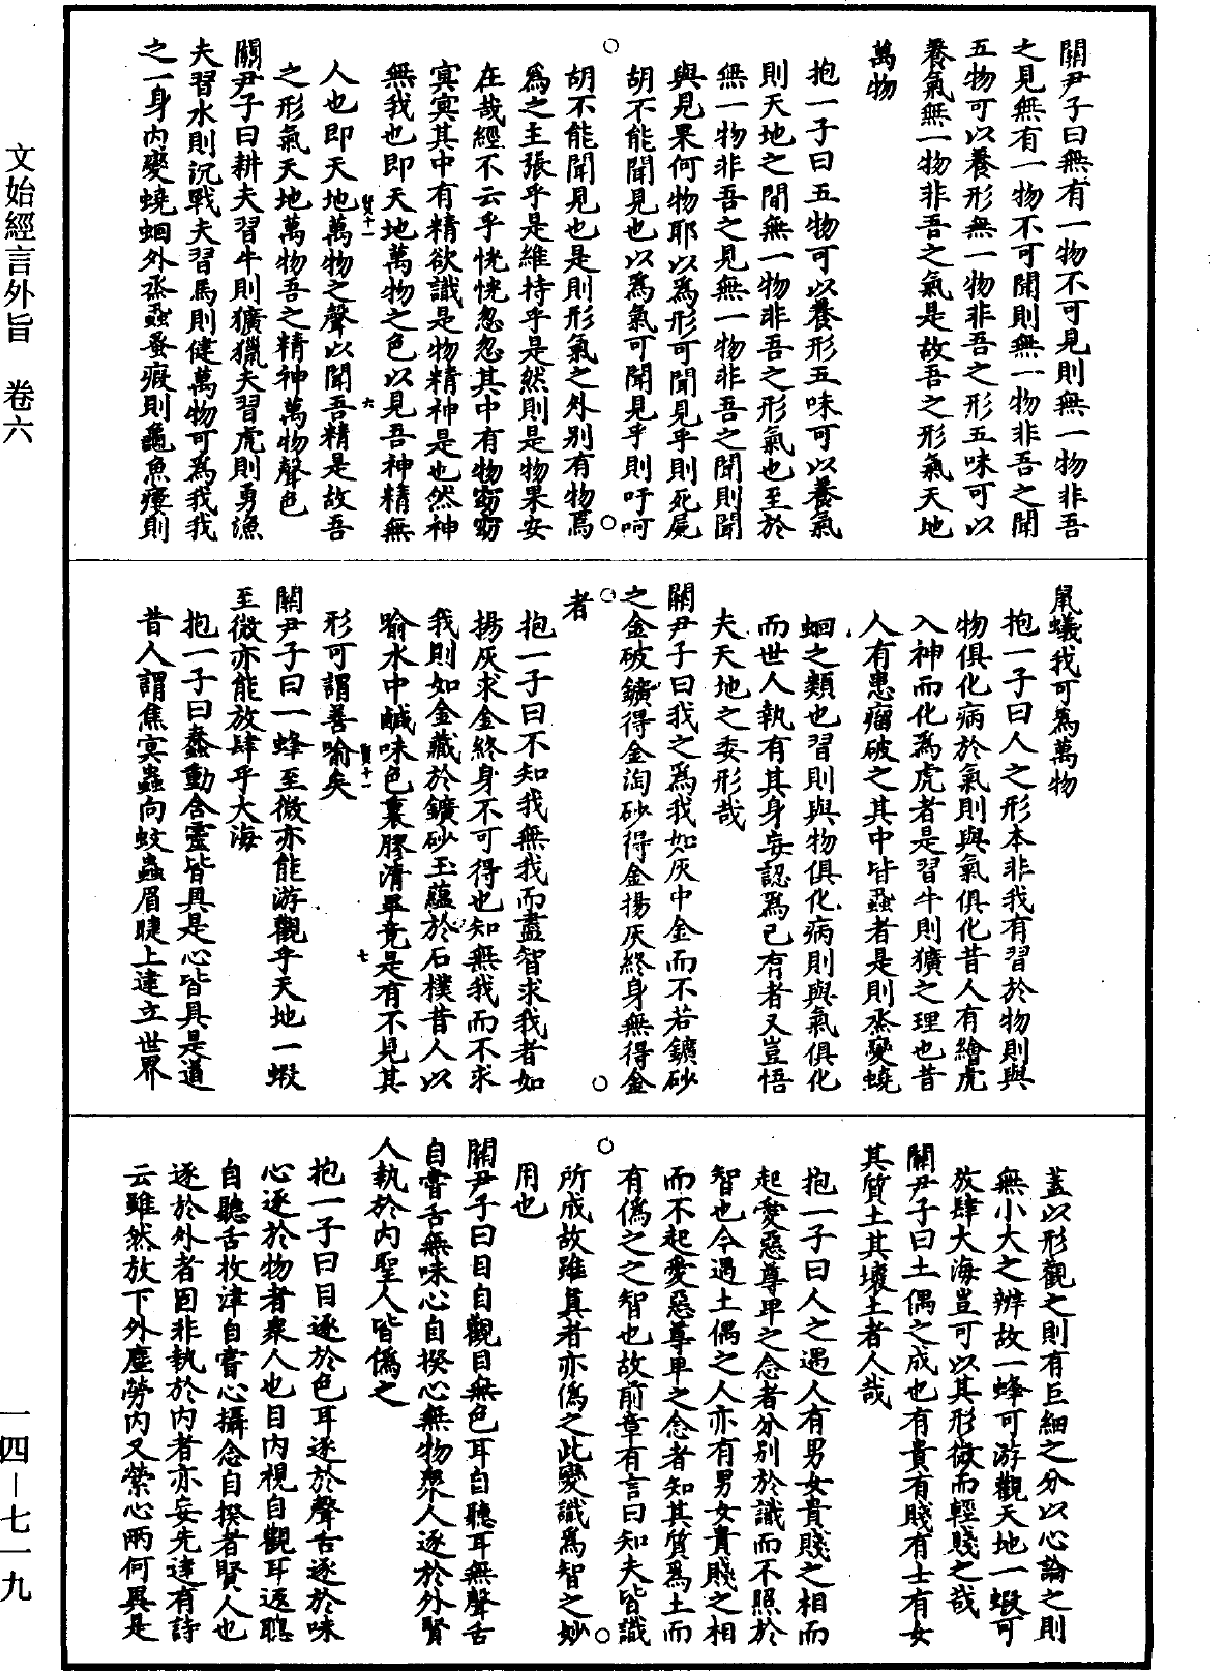 關尹子曰無有一物不可見則無一物非吾
之見無有一物不可聞則無一物非吾之聞
五物可以養形無一物非吾之形五味可以
養氣無一物非吾之氣是故吾之形氣天地
萬物
抱一子曰五物可以養形五味可以養氣
則天地之間無一物非吾之形氣也至於
無一物非吾之見無一物非吾之聞則聞
與見果何物耶以為形可聞見乎則死屍
胡不能聞見也以為氣可聞見乎則吁呵
胡不能聞見也是則形氣之外別有物焉
為之主張乎是維持乎是然則是物果安
在哉經不云乎恍恍忽忽其中有物窈窈
冥冥其中有精欲識是物精神是也然神
無我也即天地萬物之色以見吾神精無
人也即天地萬物之聲以聞吾精是故吾
之形氣天地萬物吾之精神萬物聲色
關尹子曰耕夫習牛則獷獵夫習虎則勇漁
夫習水則沉戰夫習馬則健萬物可為我我
之一身內變蟯蛔外烝蝨蚤瘕則龜魚瘻則
鼠蟻我可為萬物
抱一子曰人之形本非我有習於物則與
物俱化病於氣則與氣俱化昔人有繪虎
入神而化為虎者是習牛則獷之理也昔
人有患瘤破之其中皆蝨者是則烝變蟯
蛔之類也習則與物俱化病則與氣俱化
而世人執有其身妄認為己有者又豈悟
夫天地之委形哉
關尹子曰我之為我如灰中金而不若鑛砂
之金破鑛得金淘砂得金揚灰終身無得金
者
抱一子曰不知我無我而盡智求我者如
揚灰求金終身不可得也知無我而不求
我則如金藏於鑛砂玉蘊於石樸昔人以
喻水中鹹味色裏膠清畢竟是有不見其
形可謂善喻矣
關尹子曰一蜂至微亦能游觀乎天地一蝦
至微亦能放肆乎大海
抱一子曰蠢動含靈皆具是心皆具是道
昔人謂焦冥蟲向蚊蟲眉睫上建立世界
蓋以形觀之則有巨細之分以心論之則
無小大之辨故一蜂可游觀天地一蝦可
放肆大海豈可以其形微而輕賤之哉
關尹子曰土偶之成也有貴有賤有士有女
其質土其壞土者人哉
抱一子曰人之遇人有男女貴賤之相而
起愛惡尊卑之念者分別於識而不照於
智也今遇土偶之人亦有男女貴賤之相
而不起愛惡尊卑之念者知其質為土而
有偽之之智也故前章有言曰知夫皆識
所成故雖真者亦偽之此變識為智之妙
用也
關尹子曰目自觀目無色耳自聽耳無聲舌
自嘗舌無味心自揆心無物眾人逐於外賢
人執於內聖人皆偽之
抱一子曰目逐於色耳逐於聲舌逐於味
心逐於物者眾人也目內視自觀耳返聽
自聽舌收津自嘗心攝念自揆者賢人也
逐於外者固非執於內者亦妄先達有詩
云雖然放下外塵勞內又縈心兩何異是
文始經言外旨　卷六
一四－七一九